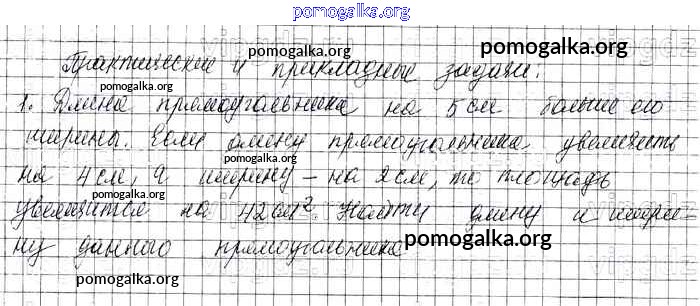 pomogalka.org
Практические и прикладные задачи.
1. Длина прямоугольника на 5 см больше его
ширины. Если длину прямоугольника увеличить
на 4 см, а ширину – на 2 см, то площадь
увеличится на 42 см² Найти длину и шири-
ну данного прямоугольника
pomogalka.org
pomogalka.org
pomogalka.org
pomogalka.org
pomogalka.org
pomogalka.org
pomogalka.org